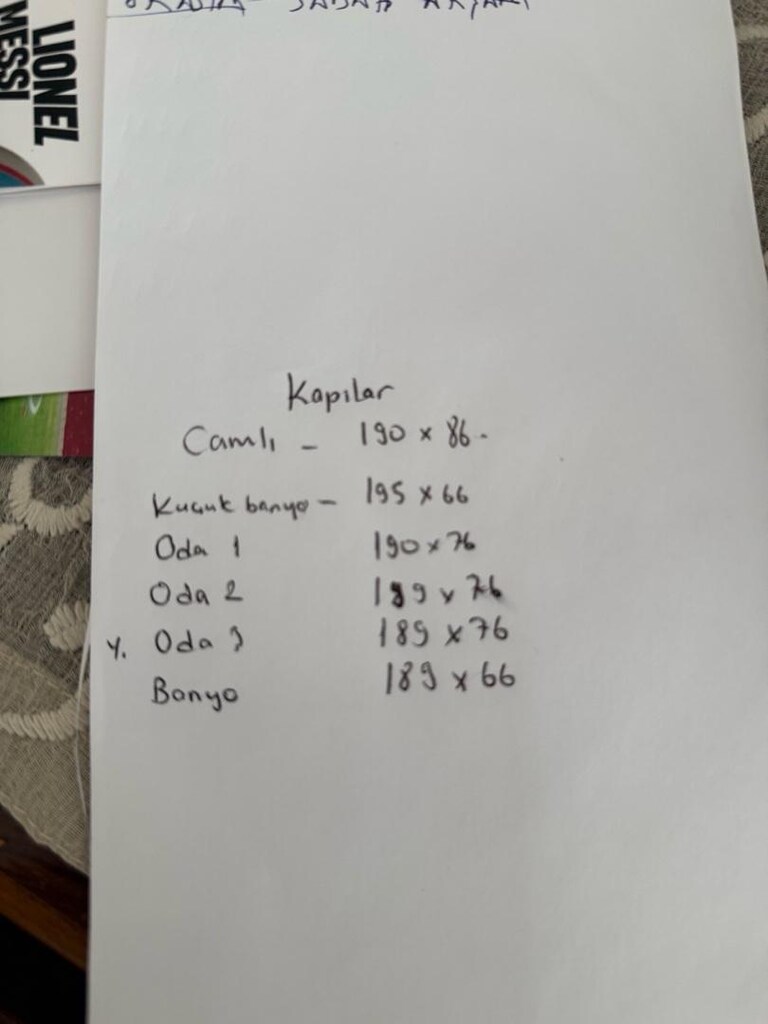 LIONEL
MESSI
Kapılar
Camlı - 190 x 86.
Kuçuk banyo - 195 x 66
Oda 1 190 x 76
Oda 2 189 x 76
Y. Oda 3 189 x 76
Banyo 189 x 66